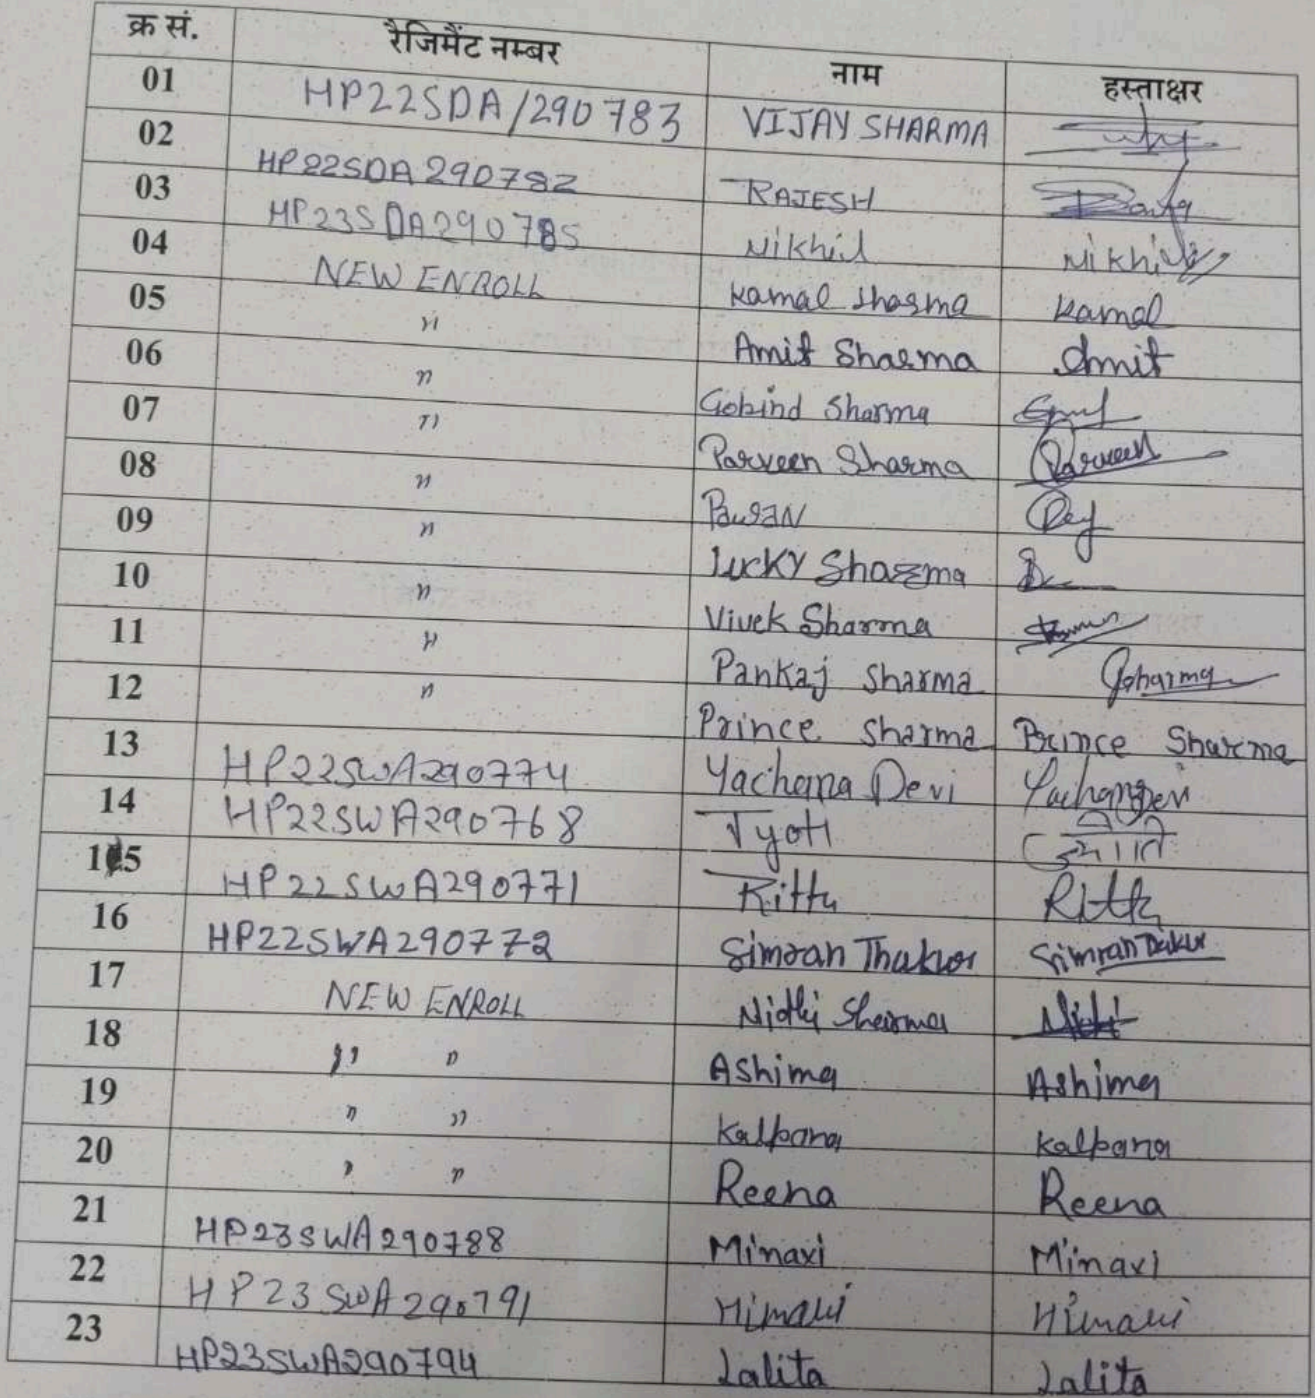 क्र सं. रैजिमैंट नम्बर नाम हस्ताक्षर
01 HP22SDA/290783 VIJAY SHARMA
02 HP22SDA290782 RAJESH
03 HP23SDA290785 Nikhil Nikhil
04 NEW ENROLL Kamal Sharma Kamal
05 " Amit Sharma Amit
06 " Gobind Sharma
07 " Parveen Sharma Parveen
08 " PawaN
09 " Lucky Sharma
10 " Vivek Sharma
11 " Pankaj Sharma Psharma
12 " Prince Sharma Prince Sharma
13 HP22SWA290774 Yachana Devi Yachana Devi
14 HP22SWA290768 Jyoti ज्योति
15 HP22SWA290771 Rittu Rittu
16 HP22SWA290772 Simran Thakur Simran Thakur
17 NEW ENROLL Nidhi Sharma Nidhi
18 " " Ashima Ashima
19 " " Kalpana Kalpana
20 " " Reena Reena
21 HP23SWA290788 Minaxi Minaxi
22 HP23SWA290791 Himani Himani
23 HP23SWA290794 Lalita Lalita